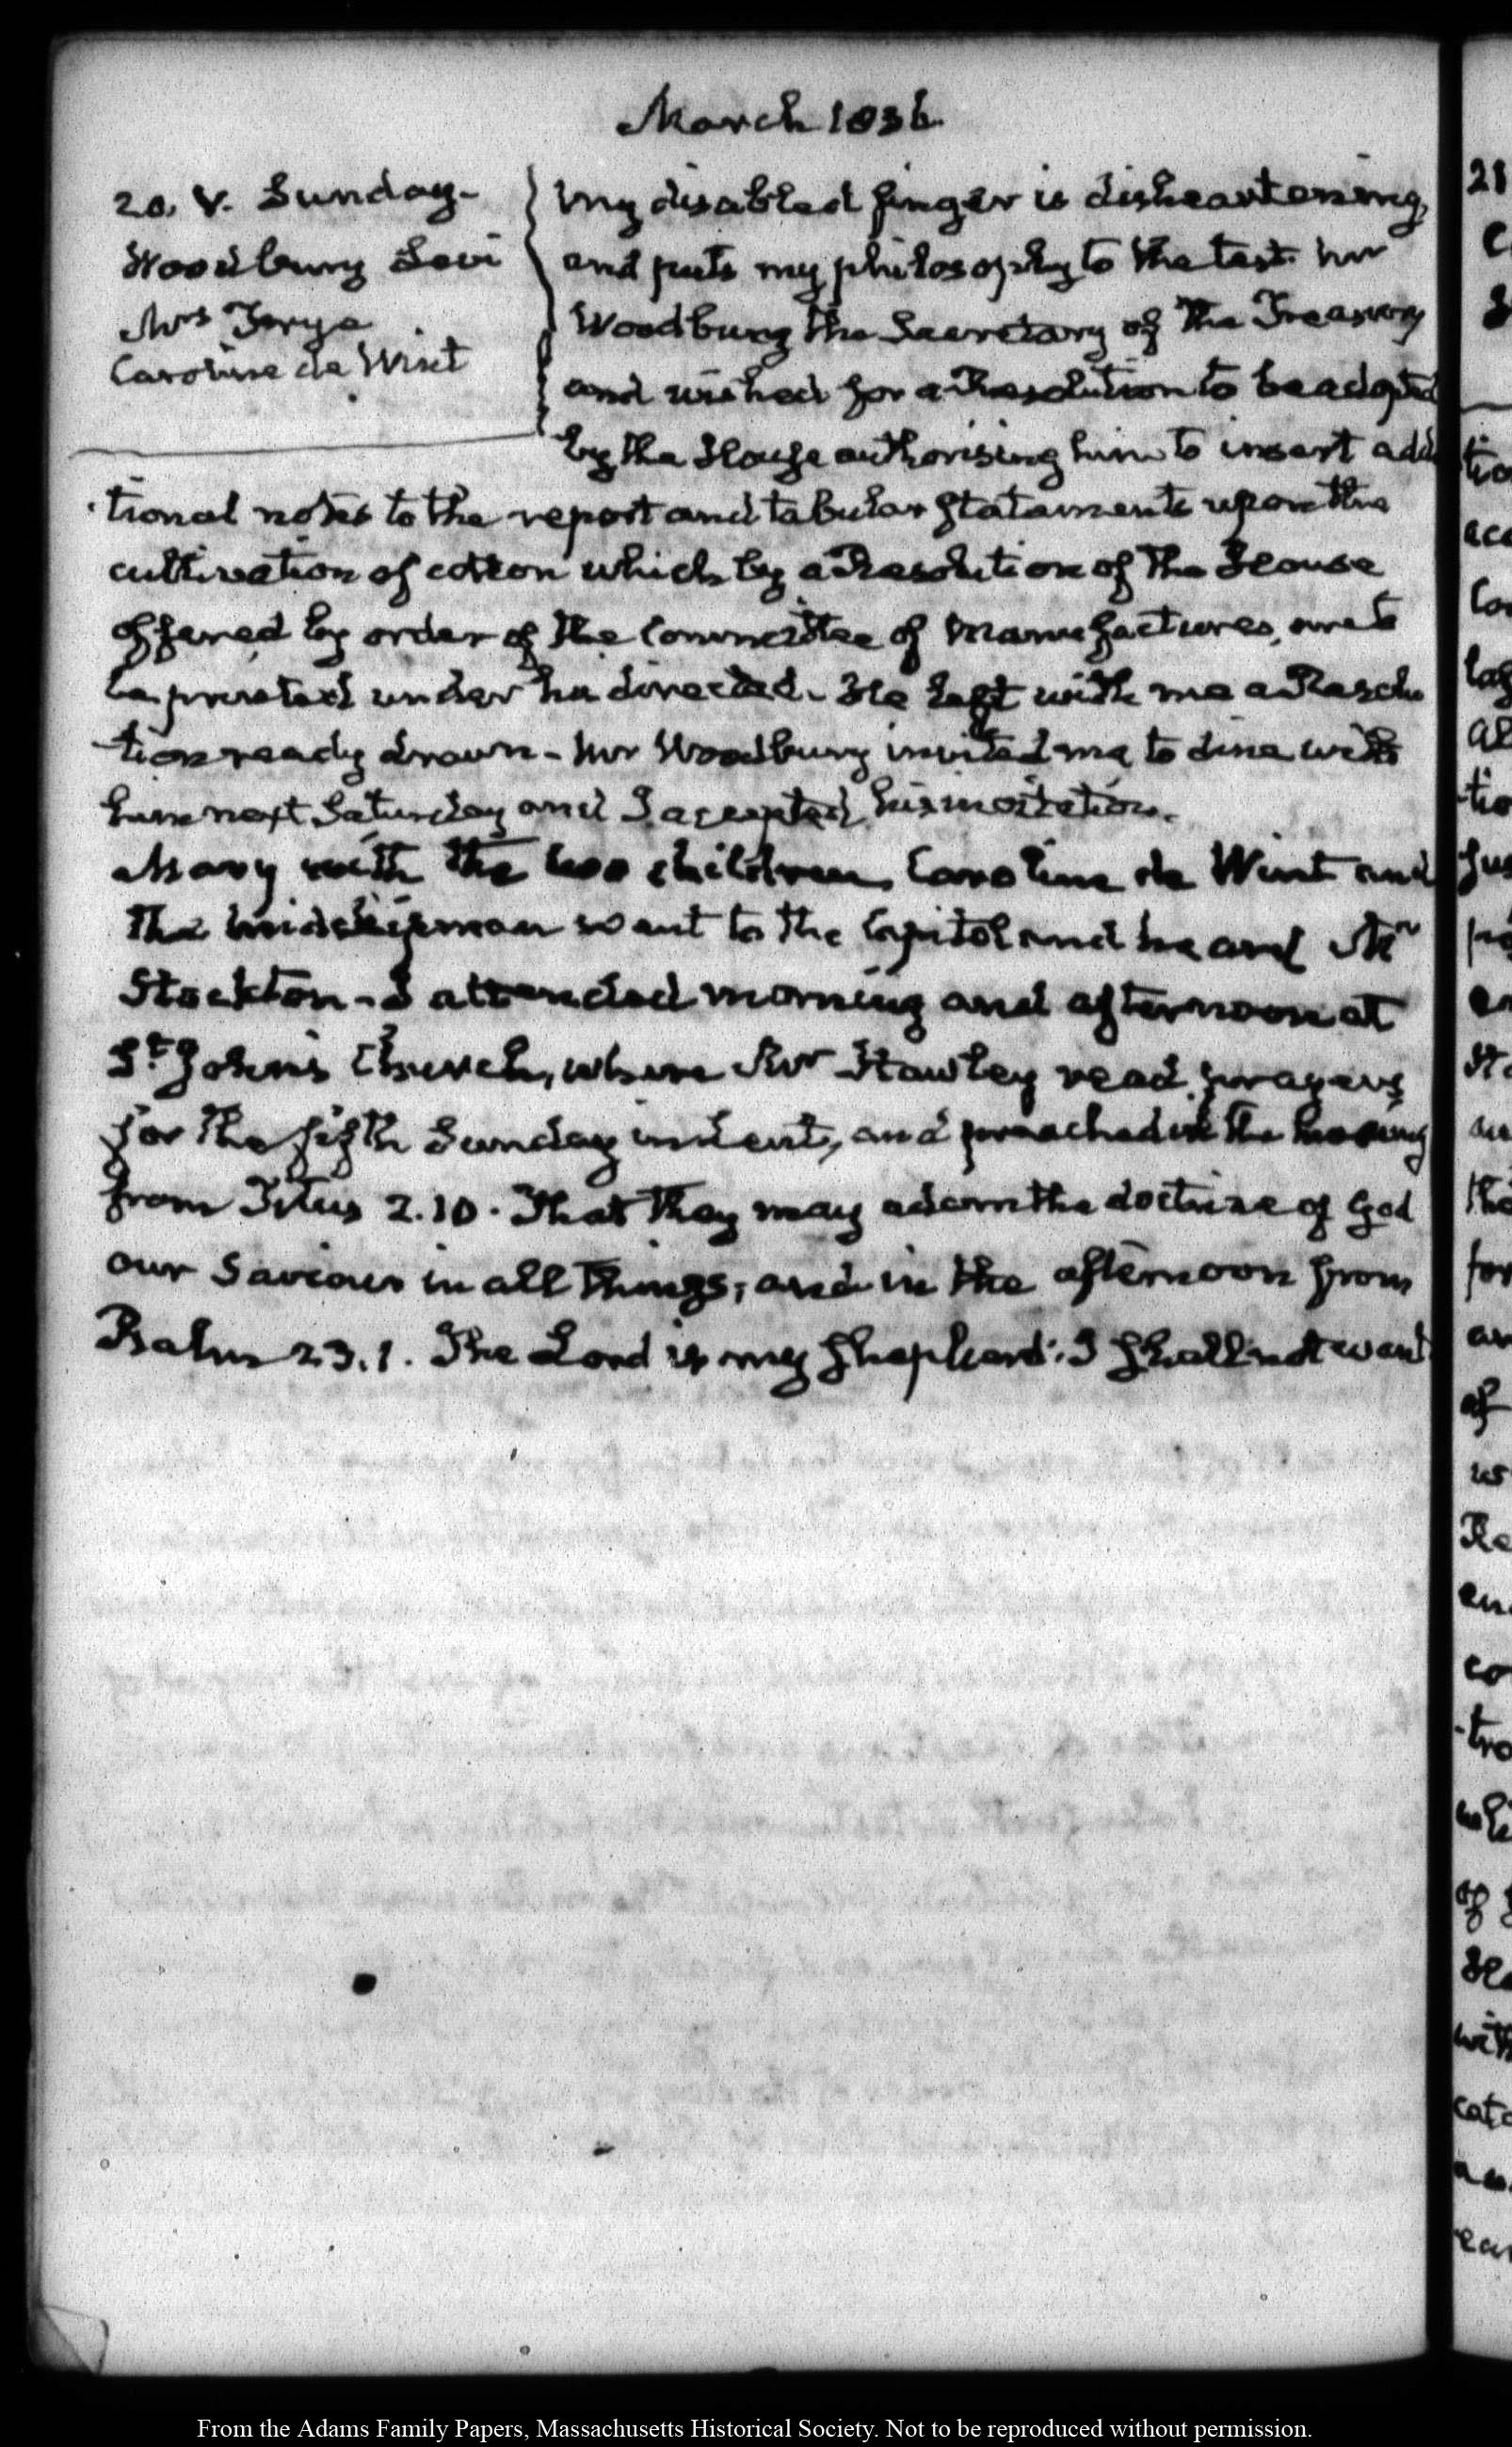 March 1836.
20. V. Sunday-
Woodbury Levi
Mrs Frye
Caroline de Wint
My disabled finger is disheartening,
and puts my philosophy to the test. Mr
Woodbury the Secretary of the Treasury
and wished for a Resolution to be adopted
by the House authorising him to insert addi
tional notes to the report and tabular statements upon the
cultivation of cotton which by a Resolution of the House
offered by order of the Committee of Manufactures, are to
be printed under his . He left with me a Resolu
tion ready drawn - Mr Woodbury invited me to dine with
him next Saturday and I accepted his invitation.
Mary with the two children, Caroline de Wint and
the midshipman went to the Capitol and heard Mr
Stockton - I attended morning and afternoon at
St. John's Church, where Mr Hawley read prayers
for the fifth Sunday in Lent, and preached in the morning
from Titus 2.10. That they may adorn the doctrine of God
our Saviour in all things; and in the afternoon from
Psalm 23.1. The Lord is my Shepherd: I shall not want.
21
C
S
tio
acc
Con
lay
al
tio
sta
an
the
for
an
of
us
Re
en
co
tro
whi
of
He
with
cat
From the Adams Family Papers, Massachusetts Historical Society. Not to be reproduced without permission.